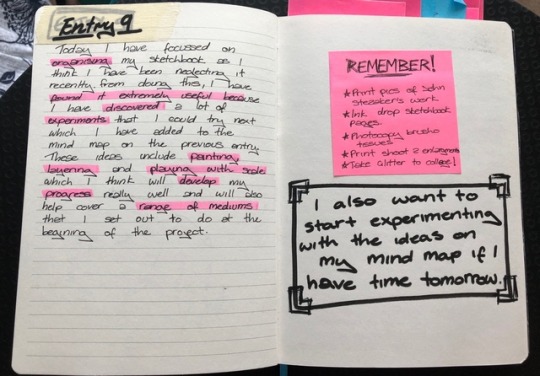 Entry 9
Today I have focussed on
organising my sketchbook as I
think I have been neglecting it
recently. from doing this, I have
found it extremely useful because
I have discovered a lot of
experiments that I could try next
which I have added to the
mind map on the previous entry.
These ideas include painting,
layering and playing with scale
which I think will develop my
progress really well and will also
help cover a range of mediums
that I set out to do at the
begining of the project.
REMEMBER!
★Print pics of John
Stezaker's work
★Ink drop sketchbook
pages.
★Photocopy brusho
tissues
★Print shoot 2
★Take Glitter to college!
I also want to
start experimenting
with the ideas on
my mind map if I
have time tomorrow.